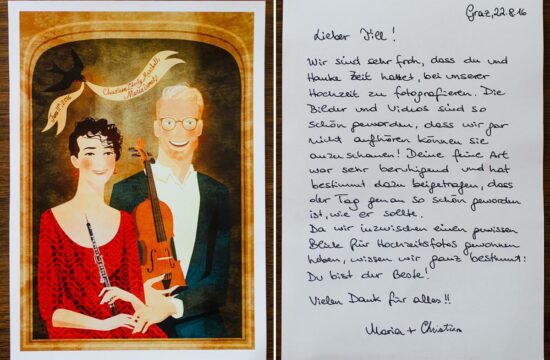 Graz, 22.8.16
Lieber Till!
Wir sind sehr froh, dass du und
Hauke Zeit hattet, bei unserer
Hochzeit zu fotografieren. Die
Bilder und Videos sind so
schön geworden, dass wir gar
nicht aufhören können sie
anzuschauen! Deine feine Art
war sehr beruhigend und hat
bestimmt dazu beigetragen, dass
der Tag genau so schön geworden
ist, wie er sollte.
Da wir inzwischen einen gewissen
Blick für Hochzeitsfotos gewonnen
haben, wissen wir ganz bestimmt:
Du bist der Beste!
Vielen Dank für alles!!
Maria + Christian